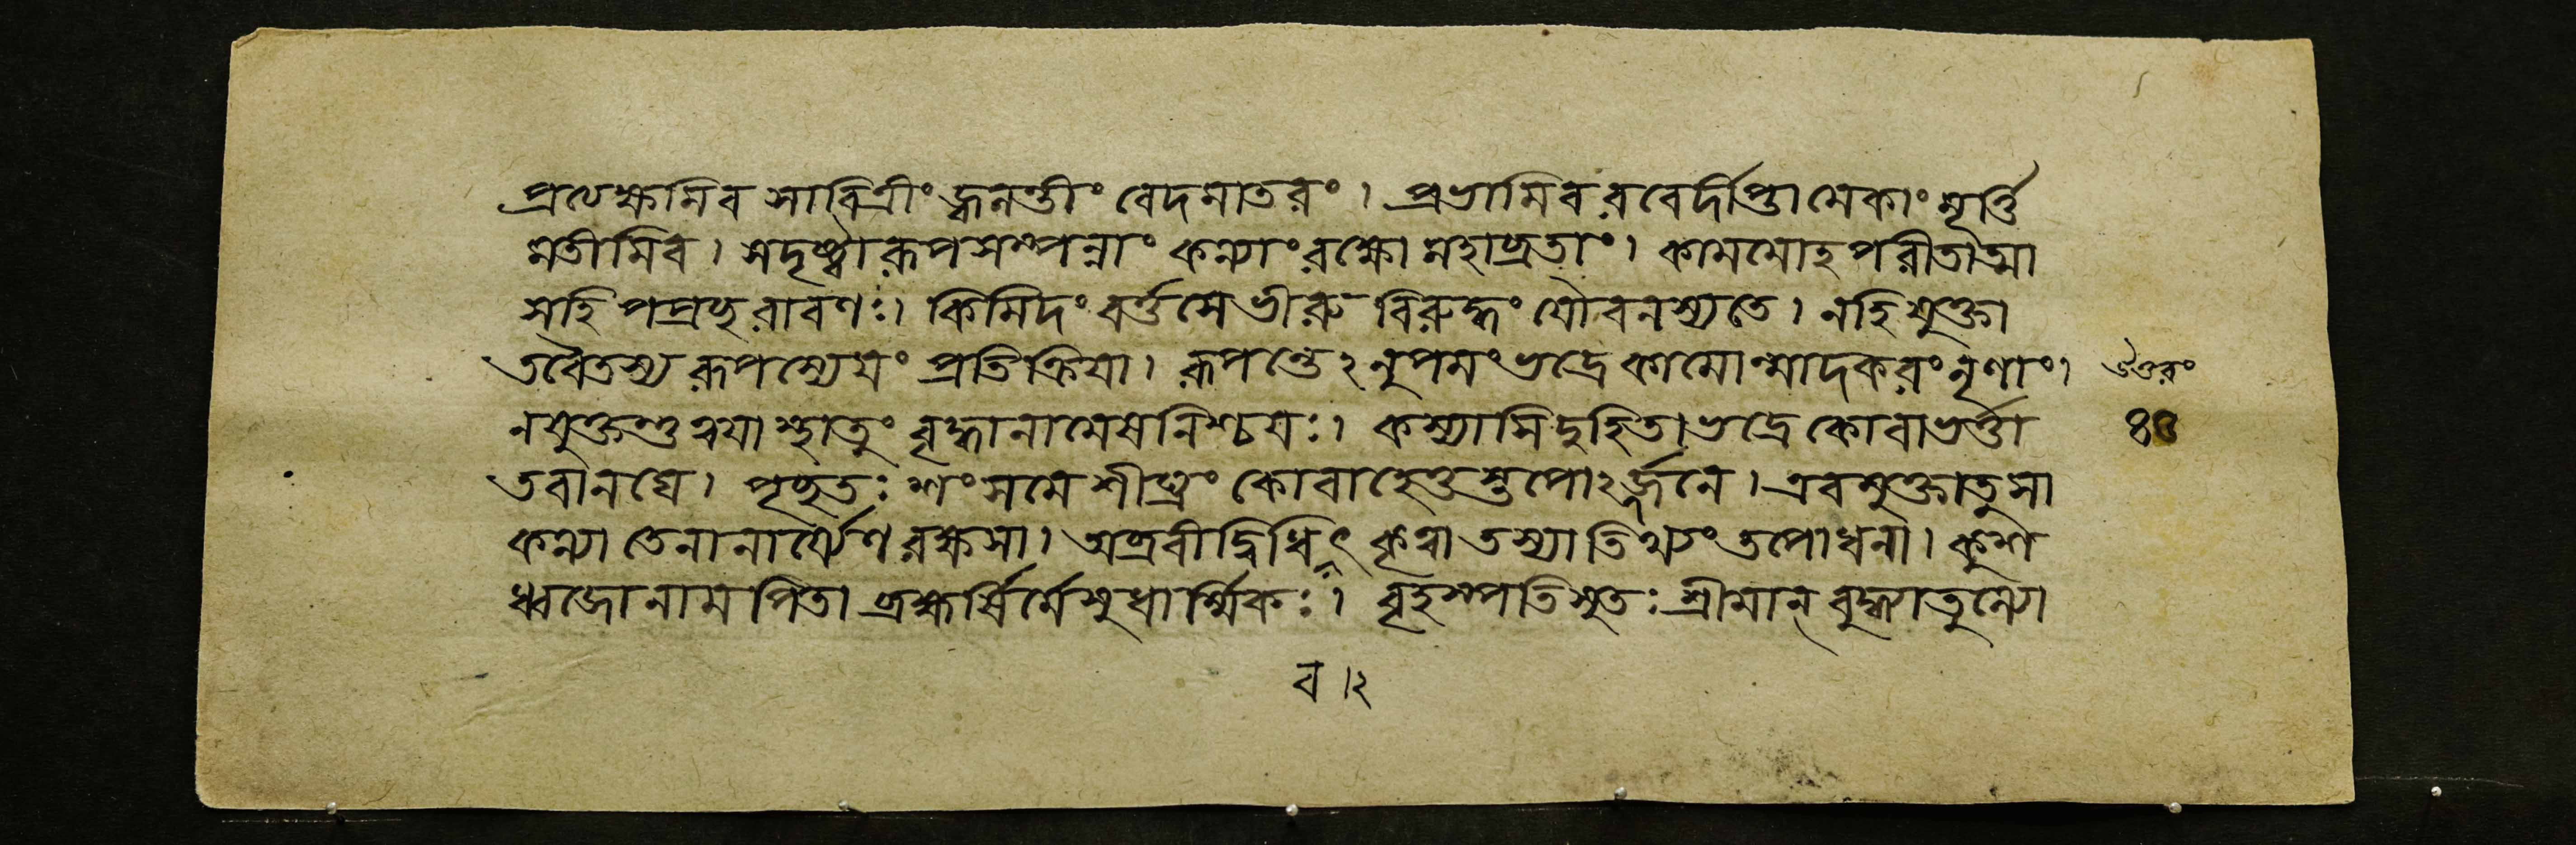 প্রত্যক্ষমিব সাবিত্রীং জ্বলন্তীং বেদমাতরং। প্রভামিব রবের্দীপ্তামেকাং মূর্ত্তি
মতীমিব। স দৃষ্ট্বা রূপসম্পন্নাং কন্যাং রক্ষো মহাব্রতাং। কামমোহপরীতাত্মা
স হি পপ্রচ্ছ রাবণঃ। কিমিদং বর্ত্তসে ভীরু বিরুদ্ধং যৌবনস্য তে। নহি যুক্তা
তবৈতস্য রূপস্যেয়ং প্রতিক্রিয়া। রূপন্তে২নুপমং ভদ্রে কামোন্মাদকরং নৃণাং।
ন যুক্তন্তু ত্বয়া স্থাতুং বৃদ্ধানামেষ নিশ্চয়ঃ। কস্যাসি দুহিতা ভদ্রে কো বা ভর্ত্তা
তবানঘে। পৃচ্ছতঃ শংস মে শীঘ্রং কো বা হেতুস্তপো২র্জ্জনে। এবমুক্তা তু সা
কন্যা তেনানার্য্যেণ রক্ষসা। অব্রবীদ্বিধিবৎ কৃত্বা তস্যাতিথ্যং তপোধনা। কুশ
ধ্বজো নাম পিতা ব্রহ্মর্ষির্মে সুধার্ম্মিকঃ। বৃহস্পতিসুতঃ শ্রীমান্ বুদ্ধ্যা তুল্যো
ব ।২
উত্তরং
৪০